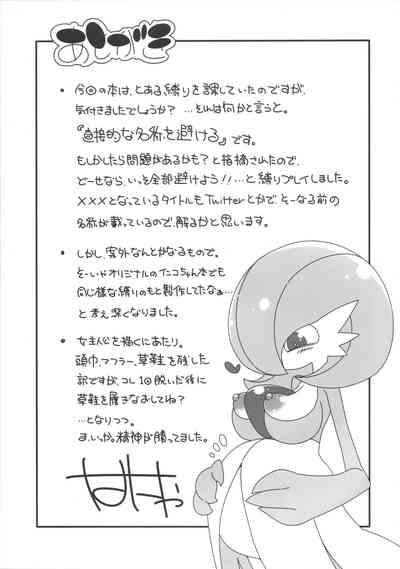 あとがき
・今回の本は、とある縛りを課していたのですが、
気付きましたでしょうか？…それは何かと言うと。
『直接的な名称を避ける』です。
もしかしたら問題があるかも？と指摘されたので、
どーせなら、いっそ全部避けよう!!…と縛りプレイしました。
×××となっているタイトルもTwitterとかで、そーなる前の
名称が載っているので、解るかと思います。
・しかし、案外なんとかなるもので。
そーいやオリジナルのインコちゃん本でも
同じ様な縛りのもと製作してたなぁ…
と考え深くなりました。
・女主人公を描くにあたり。
頭巾、マフラー、草鞋を残した
訳ですが、コレ1回脱いだ後に
草鞋を履きなおしてるね？
…となりつつ。
ま、いっか。精神が勝ってました。